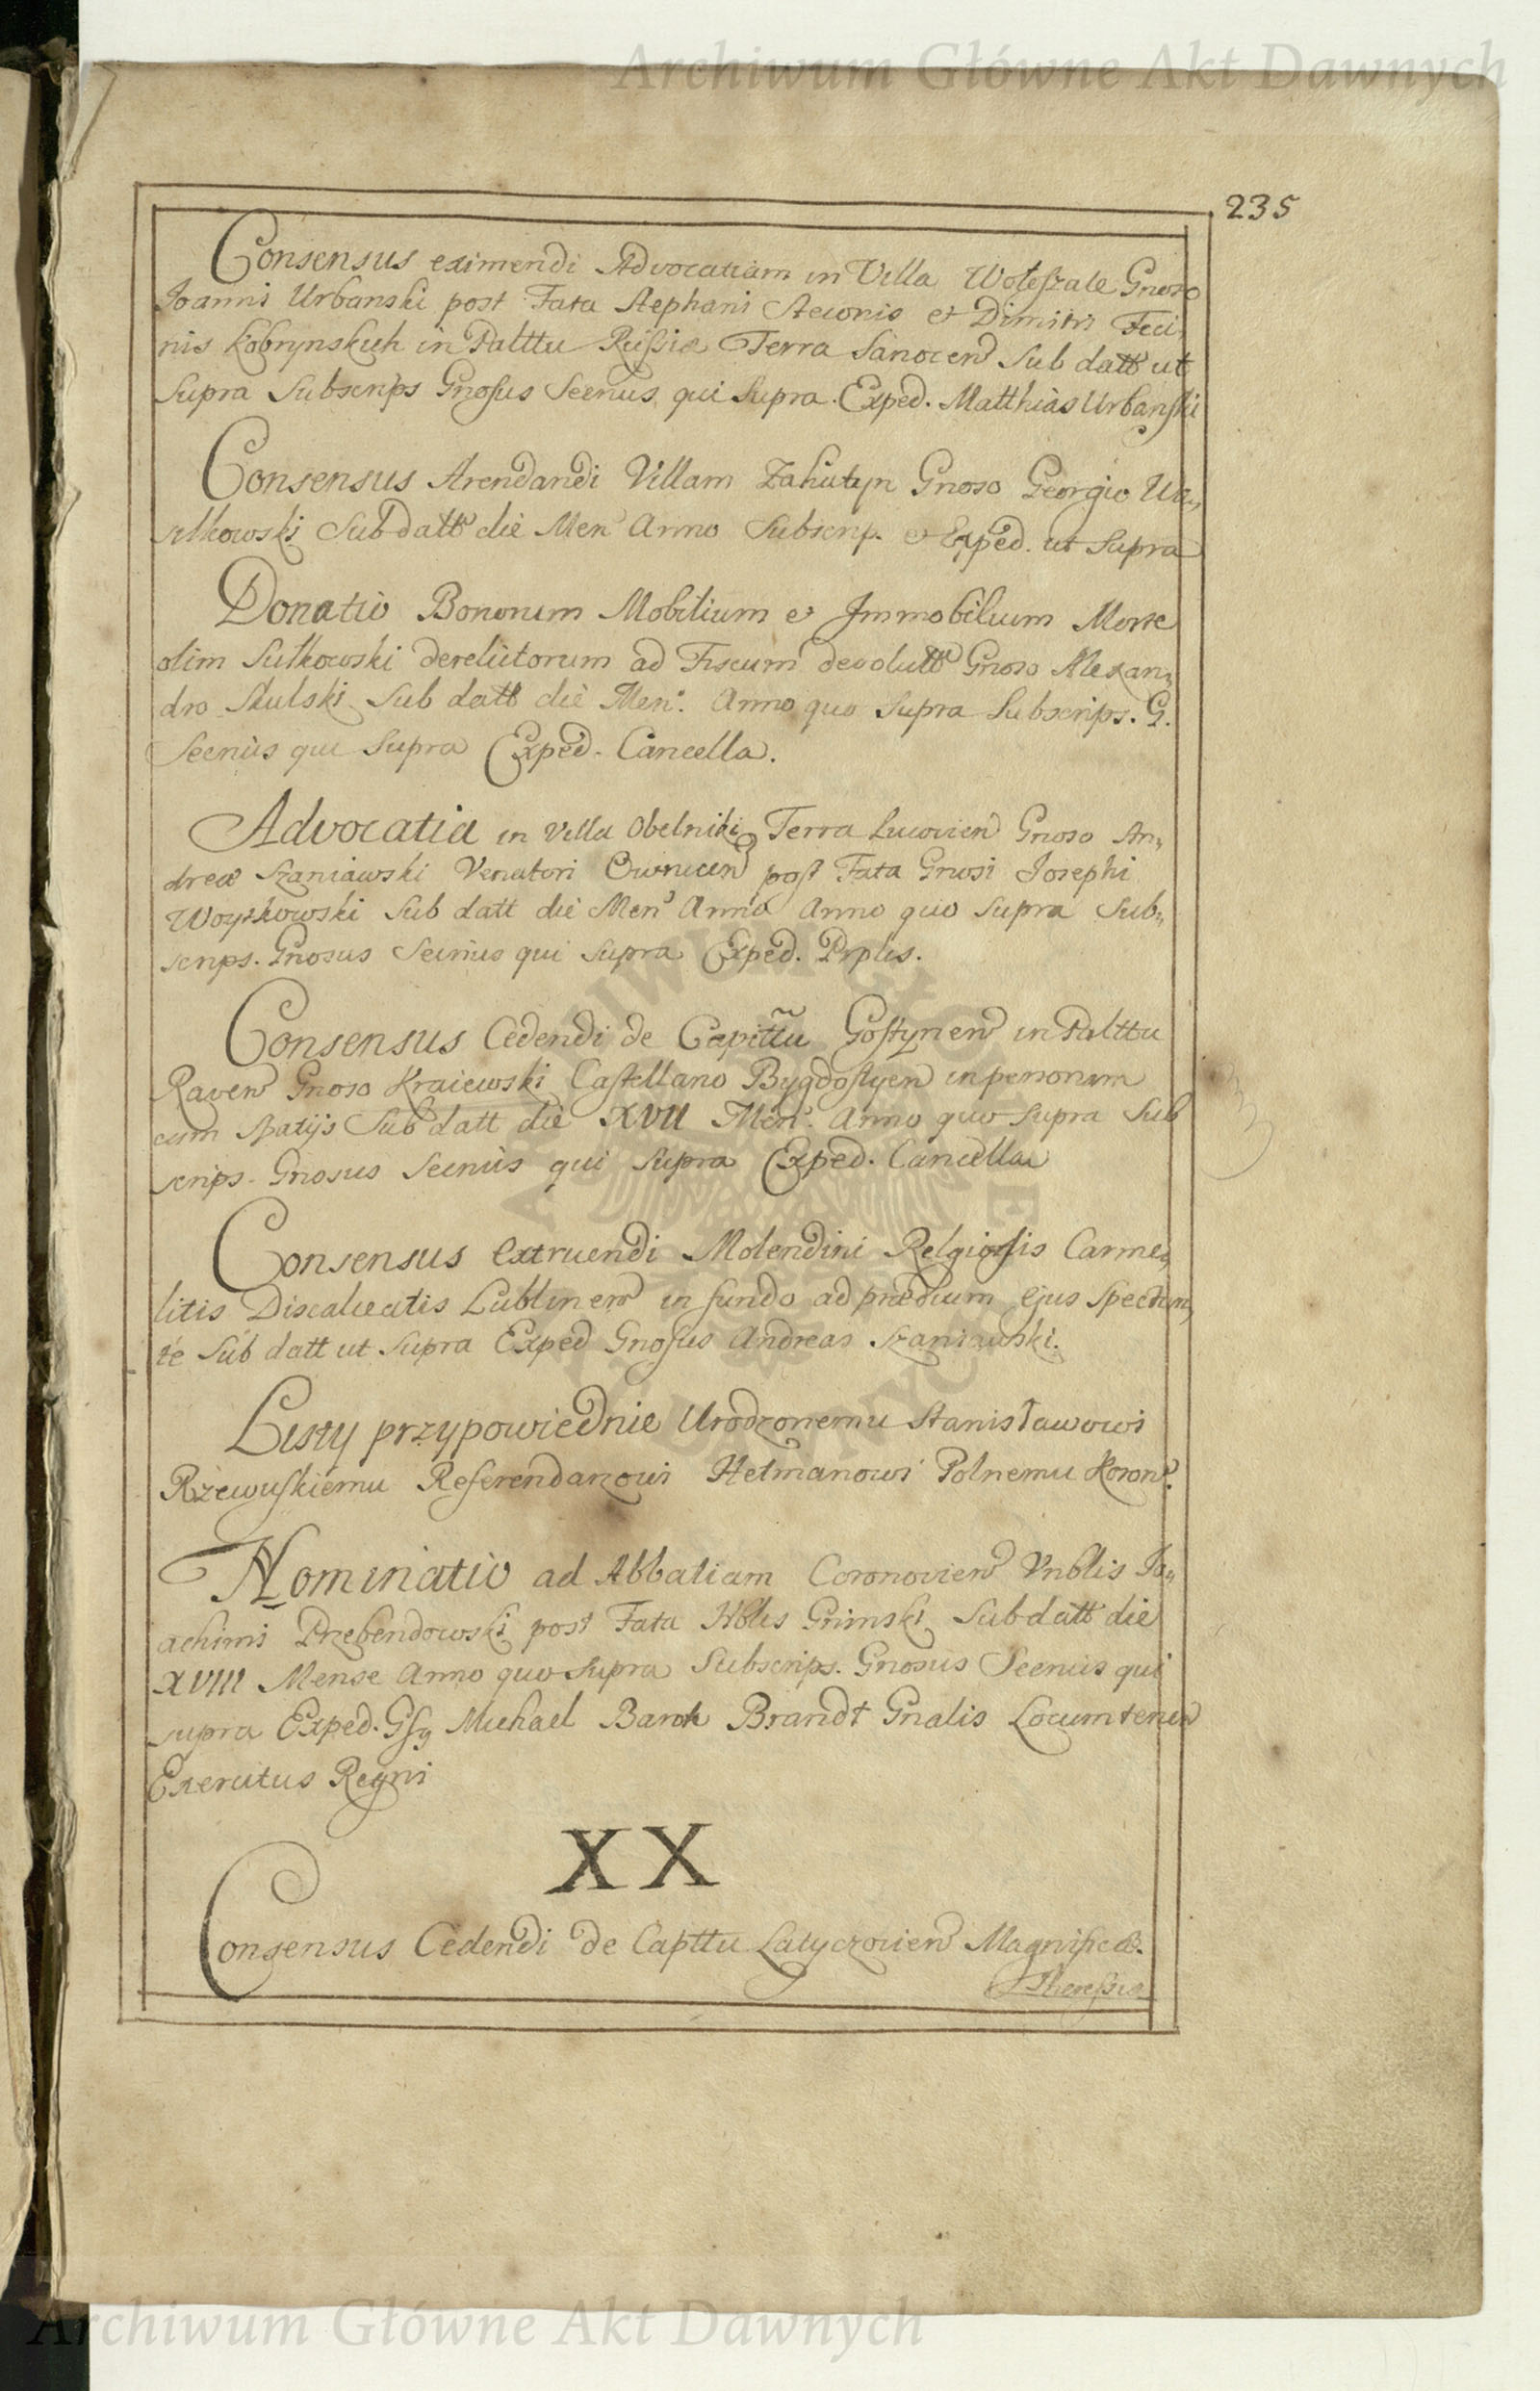 Archiwum Główne Akt Dawnych
235
Consensus eximendi Advocatiam in Villa Woleszate Gnoso
Joanni Urbanski post Fata Stephani Steconis et Dimitri Feci
nis Kobrynskich in Palttu Russiæ Terra Sanocen Sub datt ut
Supra Subscrips Gnosus Secrius qui Supra. Exped. Matthias Urbanski
Consensus Arendandi Villam Zahutyn Gnoso Georgio
Sub datt die Men Anno Subscrip. et Exped. ut Supra
Donatio Bonorum Mobilium et Immobilium
olim Sulkowski derelictorum ad Fiscum devolutt Gnoso Alexan„
dro Skulski Sub datt die Men. Anno quo Supra Subscrips. G.
Secrius qui Supra Exped. Cancella.
Advocatia in Villa Obelniki Terra Lucovien Gnoso An„
dreæ Szaniawski Venatori post Fata Gnosi Josephi
Woyskowski Sub datt die Men Anno Anno quo Supra Sub„
scrips. Gnosus Secrius qui Supra Exped. Prplis.
Consensus Cedendi de Capittũ Gostynen in Palttu
Raven Gnoso Kraiewski Castellano Bygdostyen in personam
cum Spatijs Sub datt die XVII Men. Anno quo Supra Sub
scrips. Gnosus Secrius qui Supra Exped. Cancella
Consensus Extruendi Molendini Relgiosis Carme„
litis Discalceatis Lublinen in fundo ad prædium ejus Spectan„
te Sub datt ut Supra Exped Gnosus Andreas Szaniawski.
Listy przypowiednie Urodzonemu Stanisławowi
Rzewuskiemu Referendarzowi Hetmanowi Polnemu Koron.
Nominatio ad Abbatiam Coronovien Vnblis Jo„
achimi Przebendowski post Fata Grimski Sub datt die
XVIII Mense Anno quo Supra Subscrips. Gnosus Secrius qui
supra Exped. Gsg Michael Baron Brandt Gnalis Locumtenen
Exercitus Regni
XX
Consensus Cedendi de Capttu Latyczovien Magnificæ.
Theressia
Archiwum Główne Akt Dawnych